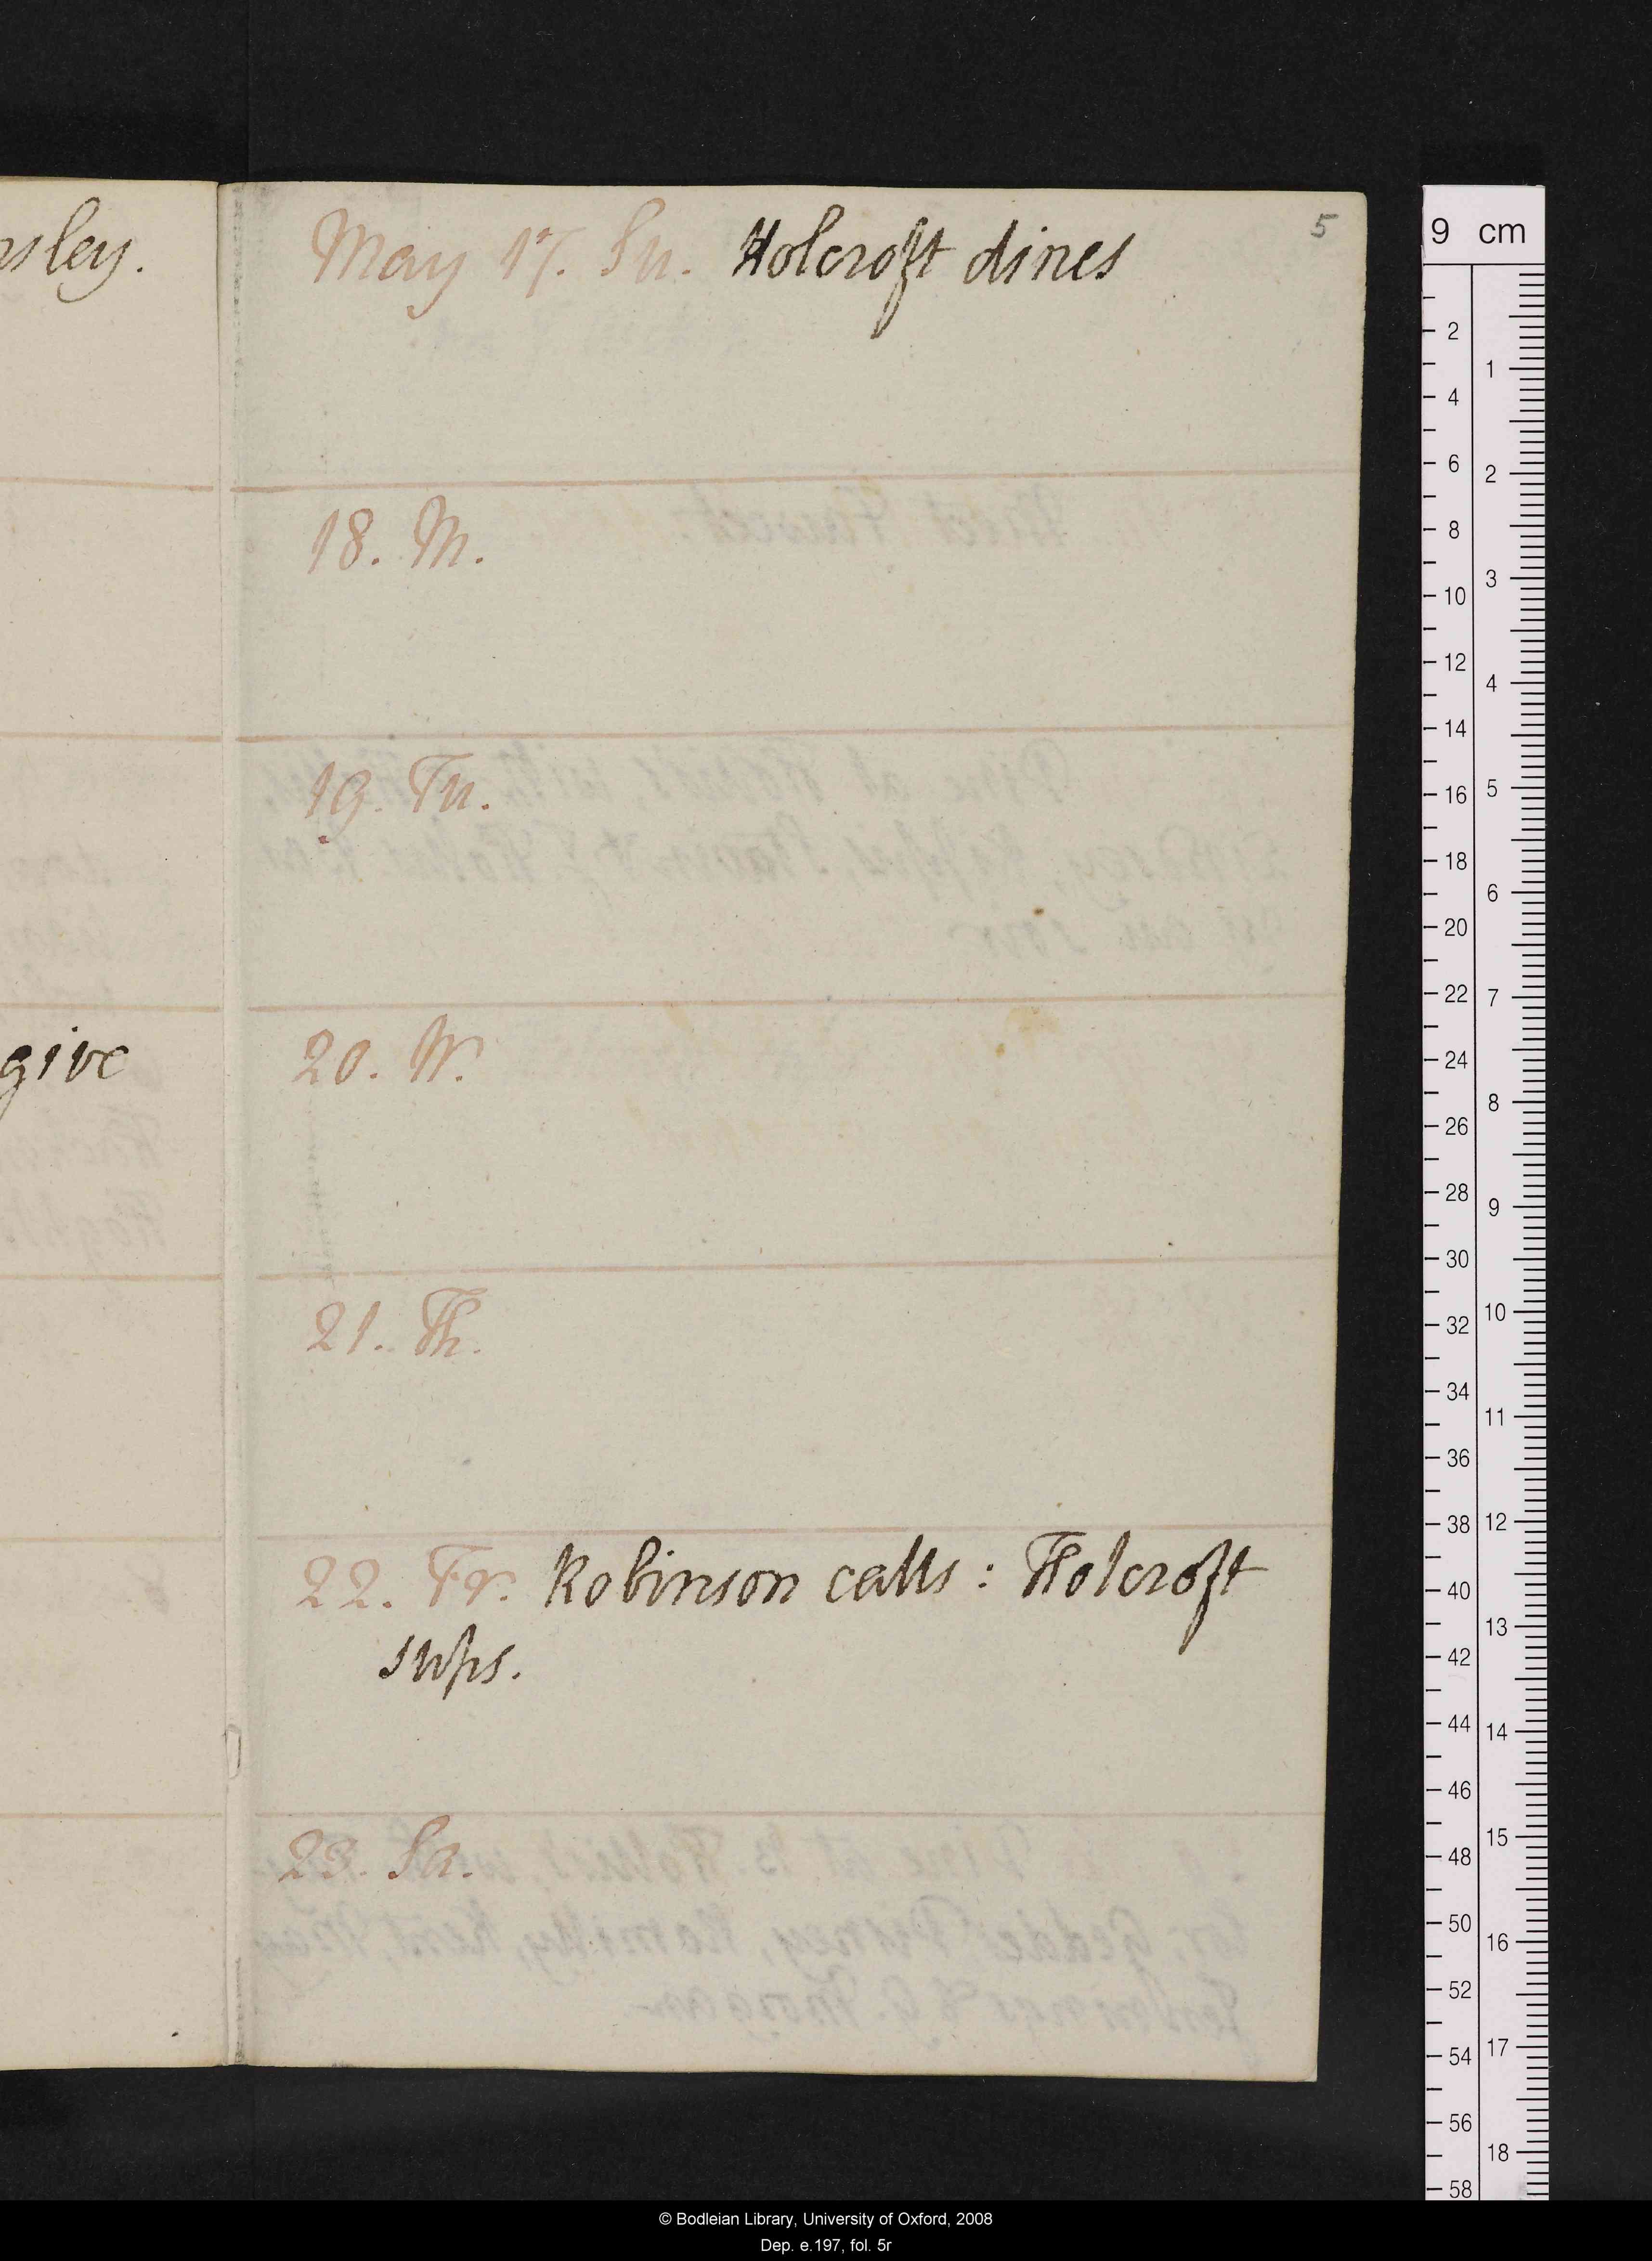 sley.
give
5
May 17. Su. Holcroft dines
18. M.
19. Tu.
20. W.
21. Th.
22. Fr. Robinson calls : Holcroft
sups.
23. Sa.
9 cm
2
4
6
8
10
12
14
16
18
20
22
24
26
28
30
32
34
36
38
40
42
44
46
48
50
52
54
56
58
1
2
3
4
5
6
7
8
9
10
11
12
13
14
15
16
17
18
© Bodleian Library, University of Oxford, 2008
Dep. e.197, fol. 5r